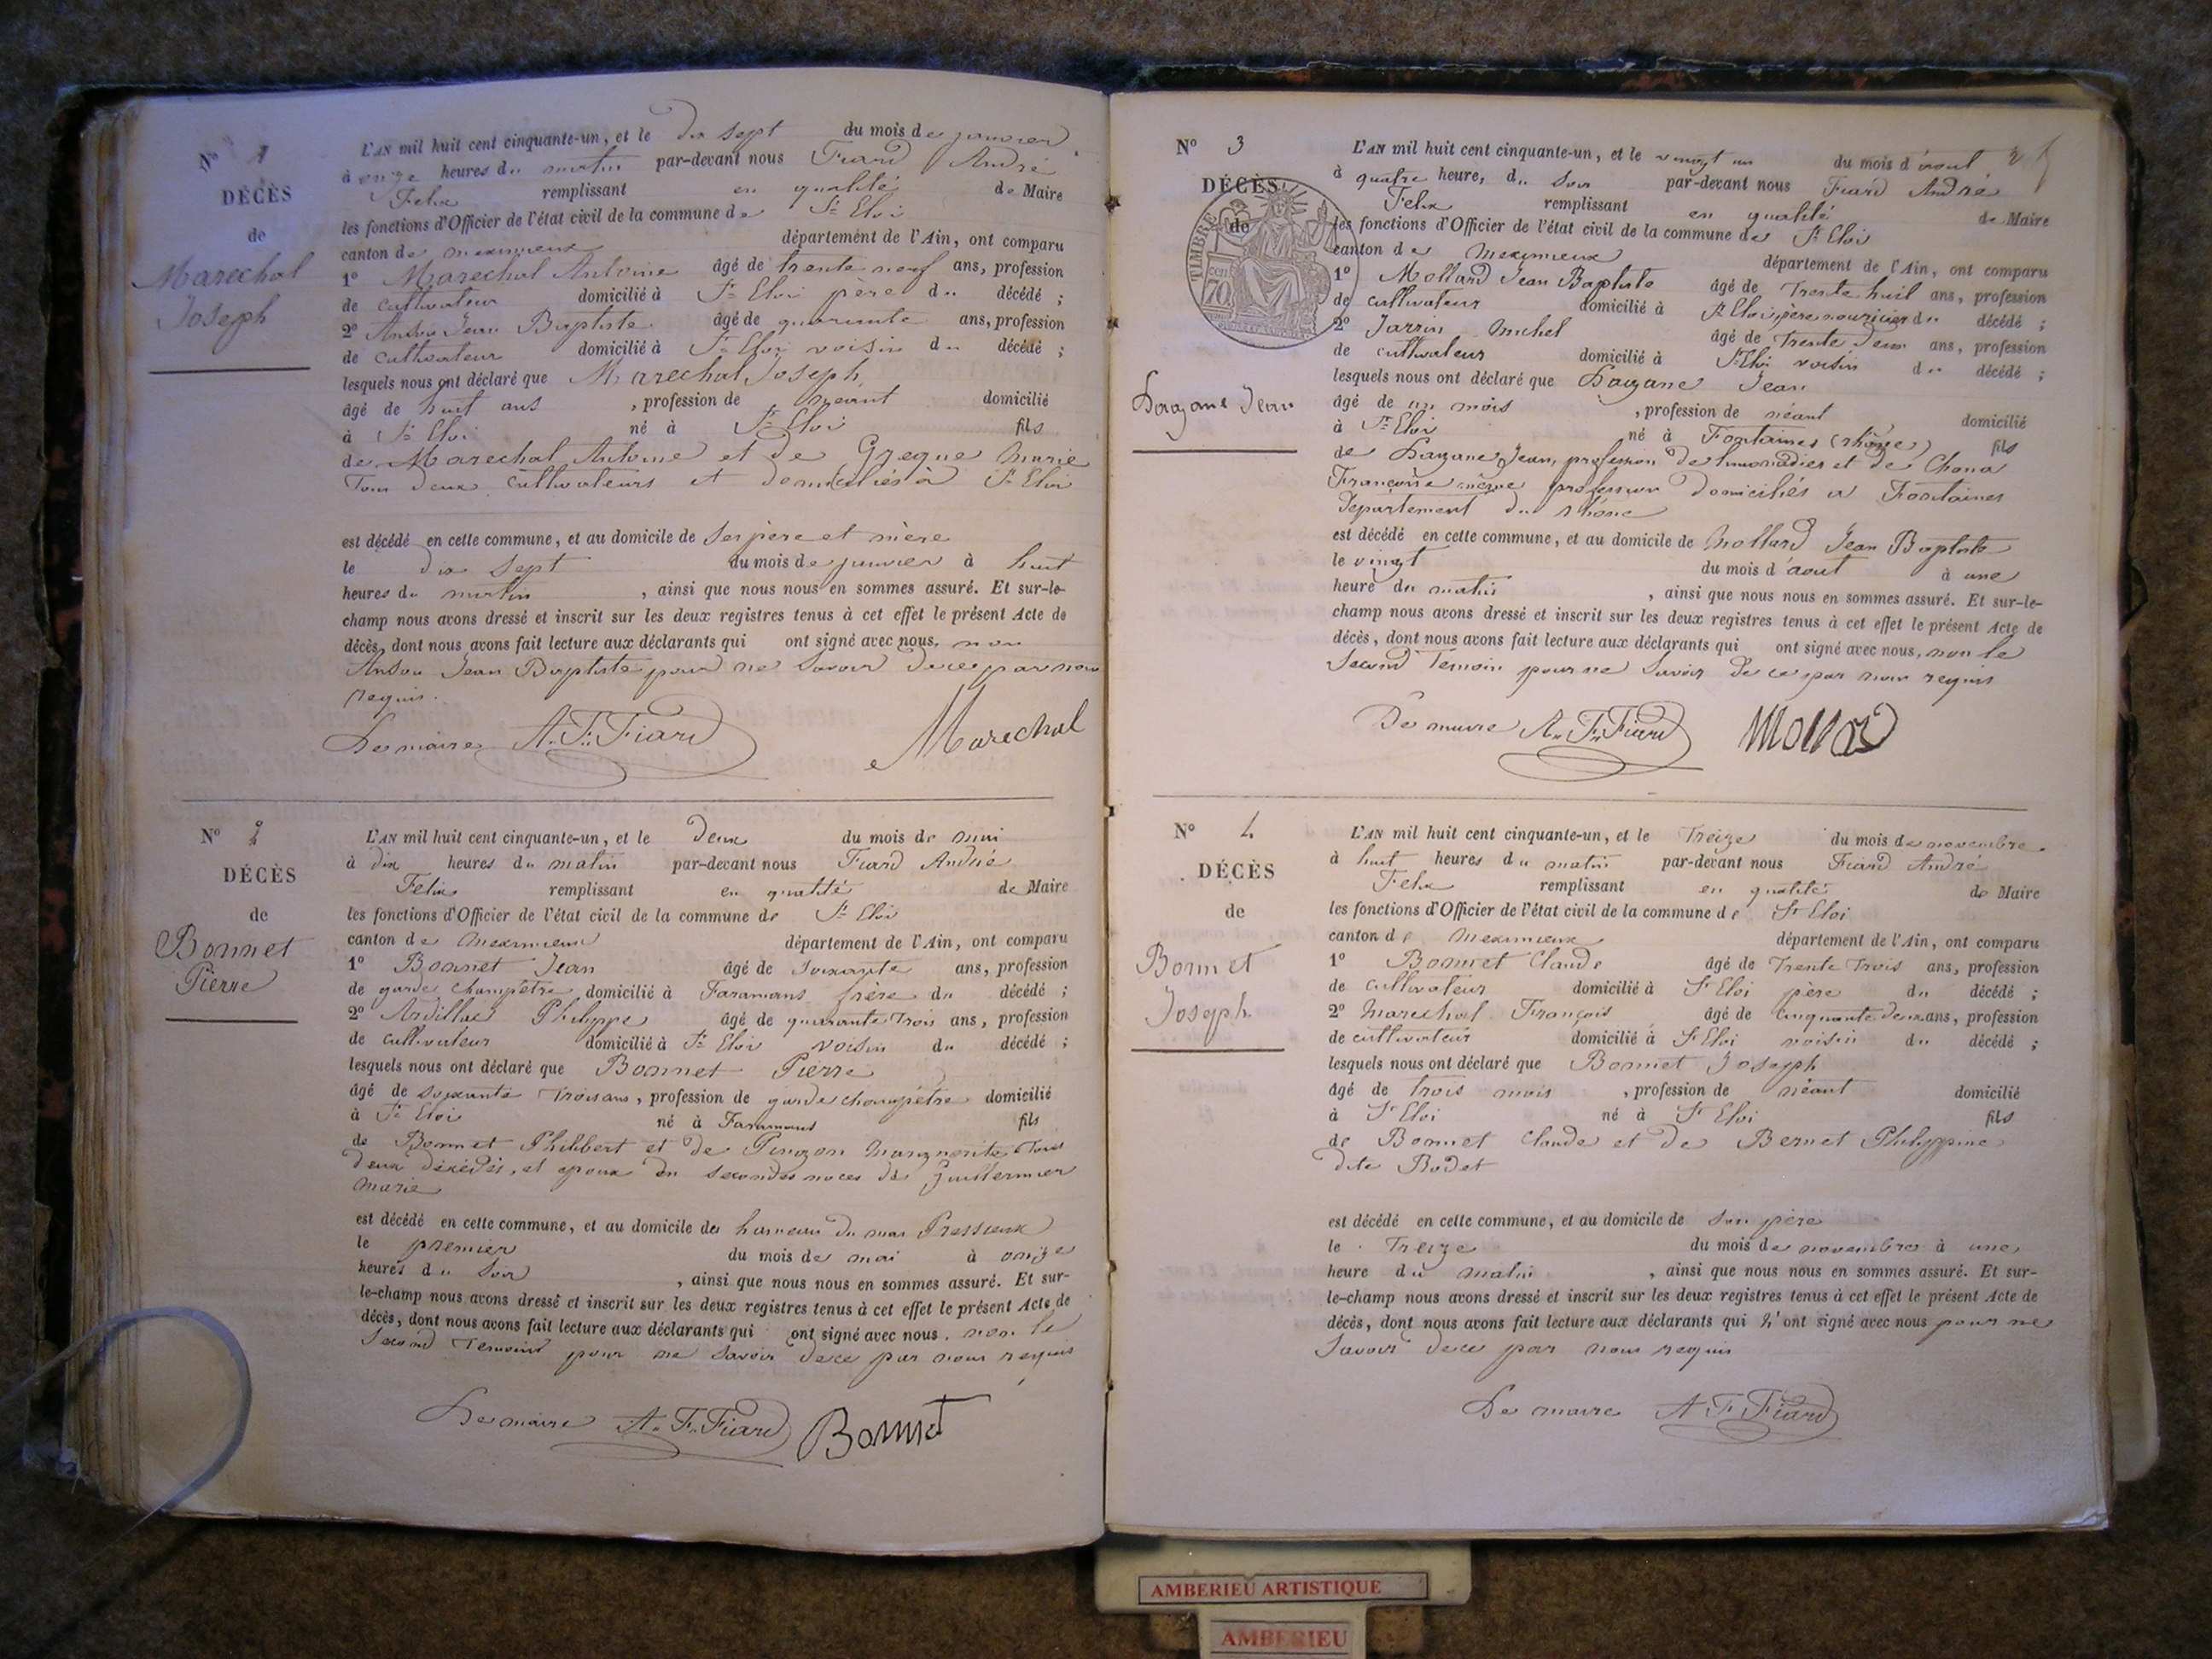 N° 1
DÉCÈS
de
Marechal
Joseph
L'AN mil huit cent cinquante-un, et le dix sept du mois de janvier
à onze heures du matin par-devant nous Fiard André
Felix remplissant en qualité de Maire
les fonctions d'Officier de l'état civil de la commune de St Eloi
canton de meximieux département de l'Ain, ont comparu
1° Marechal Antoine âgé de trente neuf ans, profession
de cultivateur domicilié à St Eloi père du décédé ;
2° Jean Baptiste âgé de quarante ans, profession
de cultivateur domicilié à St Eloi voisin du décédé ;
lesquels nous ont déclaré que Marechal Joseph
âgé de huit ans , profession de néant domicilié
à St Eloi né à St Eloi fils
de Marechal Antoine et de Greque Marie
Tous deux cultivateurs et domiciliés à St Eloi
est décédé en cette commune, et au domicile de ses père et mère
le dix sept du mois de janvier à huit
heures du matin , ainsi que nous nous en sommes assuré. Et sur-le-
champ nous avons dressé et inscrit sur les deux registres tenus à cet effet le présent Acte de
décès, dont nous avons fait lecture aux déclarants qui ont signé avec nous, non
Jean Baptiste pour ne savoir de ce par nous
requis.
Le maire A. F. Fiard Marechal
N° 2
DÉCÈS
de
Bonnet
Pierre
L'AN mil huit cent cinquante-un, et le deux du mois de mai
à dix heures du matin par-devant nous Fiard André
Felix remplissant en qualité de Maire
les fonctions d'Officier de l'état civil de la commune de St Eloi
canton de meximieux département de l'Ain, ont comparu
1° Bonnet Jean âgé de soixante ans, profession
de garde champêtre domicilié à Faramans frère du décédé ;
2° Philippe âgé de quarante trois ans, profession
de cultivateur domicilié à St Eloi voisin du décédé ;
lesquels nous ont déclaré que Bonnet Pierre
âgé de soixante trois ans, profession de garde champêtre domicilié
à St Eloi né à Faramans fils
de Bonnet Philibert et de Pingon Marguerite Tous
deux décédés, et époux en secondes noces de Guillermier
Marie
est décédé en cette commune, et au domicile de hameau du mas Pressieux
le premier du mois de mai à onze
heures du soir , ainsi que nous nous en sommes assuré. Et sur-
le-champ nous avons dressé et inscrit sur les deux registres tenus à cet effet le présent Acte de
décès, dont nous avons fait lecture aux déclarants qui ont signé avec nous. non le
second Temoins pour ne savoir de ce par nous requis
Le maire A. F. Fiard Bonnet
N° 3
DÉCÈS
de
TIMBRE
70
Jean
L'AN mil huit cent cinquante-un, et le vingt un du mois d'aout
à quatre heure, du soir par-devant nous Fiard André
Felix remplissant en qualité de Maire
les fonctions d'Officier de l'état civil de la commune de St Eloi
canton de meximieux département de l'Ain, ont comparu
1° Mollard Jean Baptiste âgé de Trente huit ans, profession
de cultivateur domicilié à St Eloi père nouricier du décédé ;
2° Jarrin Michel âgé de Trente deux ans, profession
de cultivateur domicilié à St Eloi voisin du décédé ;
lesquels nous ont déclaré que Jean
âgé de un mois , profession de néant domicilié
à St Eloi né à Fontaines (rhône) fils
de Jean, profession de limonadier et de Chana
Françoise même profession domiciliés a Fontaines
Departement du rhône
est décédé en cette commune, et au domicile de Mollard Jean Baptiste
le vingt du mois d'aout à une
heure du matin , ainsi que nous nous en sommes assuré. Et sur-le-
champ nous avons dressé et inscrit sur les deux registres tenus à cet effet le présent Acte de
décès, dont nous avons fait lecture aux déclarants qui ont signé avec nous, non le
second Temoin pour ne savoir de ce par nous requis
Le maire A. F. Fiard Mollard
N° 4
DÉCÈS
de
Bonnet
Joseph
L'AN mil huit cent cinquante-un, et le Treize du mois de novembre
à huit heures du matin par-devant nous Fiard André
Felix remplissant en qualité de Maire
les fonctions d'Officier de l'état civil de la commune de St Eloi
canton de meximieux département de l'Ain, ont comparu
1° Bonnet Claude âgé de Trente Trois ans, profession
de cultivateur domicilié à St Eloi père du décédé ;
2° Marechal François âgé de cinquante deux ans, profession
de cultivateur domicilié à St Eloi voisin du décédé ;
lesquels nous ont déclaré que Bonnet Joseph
âgé de trois mois , profession de néant domicilié
à St Eloi né à St Eloi fils
de Bonnet Claude et de Bernet Philippine
dite Budet
est décédé en cette commune, et au domicile de son père
le Treize du mois de novembre à une
heure du matin , ainsi que nous nous en sommes assuré. Et sur-
le-champ nous avons dressé et inscrit sur les deux registres tenus à cet effet le présent Acte de
décès, dont nous avons fait lecture aux déclarants qui n'ont signé avec nous pour ne
savoir de ce par nous requis
Le maire A. F. Fiard
AMBERIEU ARTISTIQUE
AMBERIEU